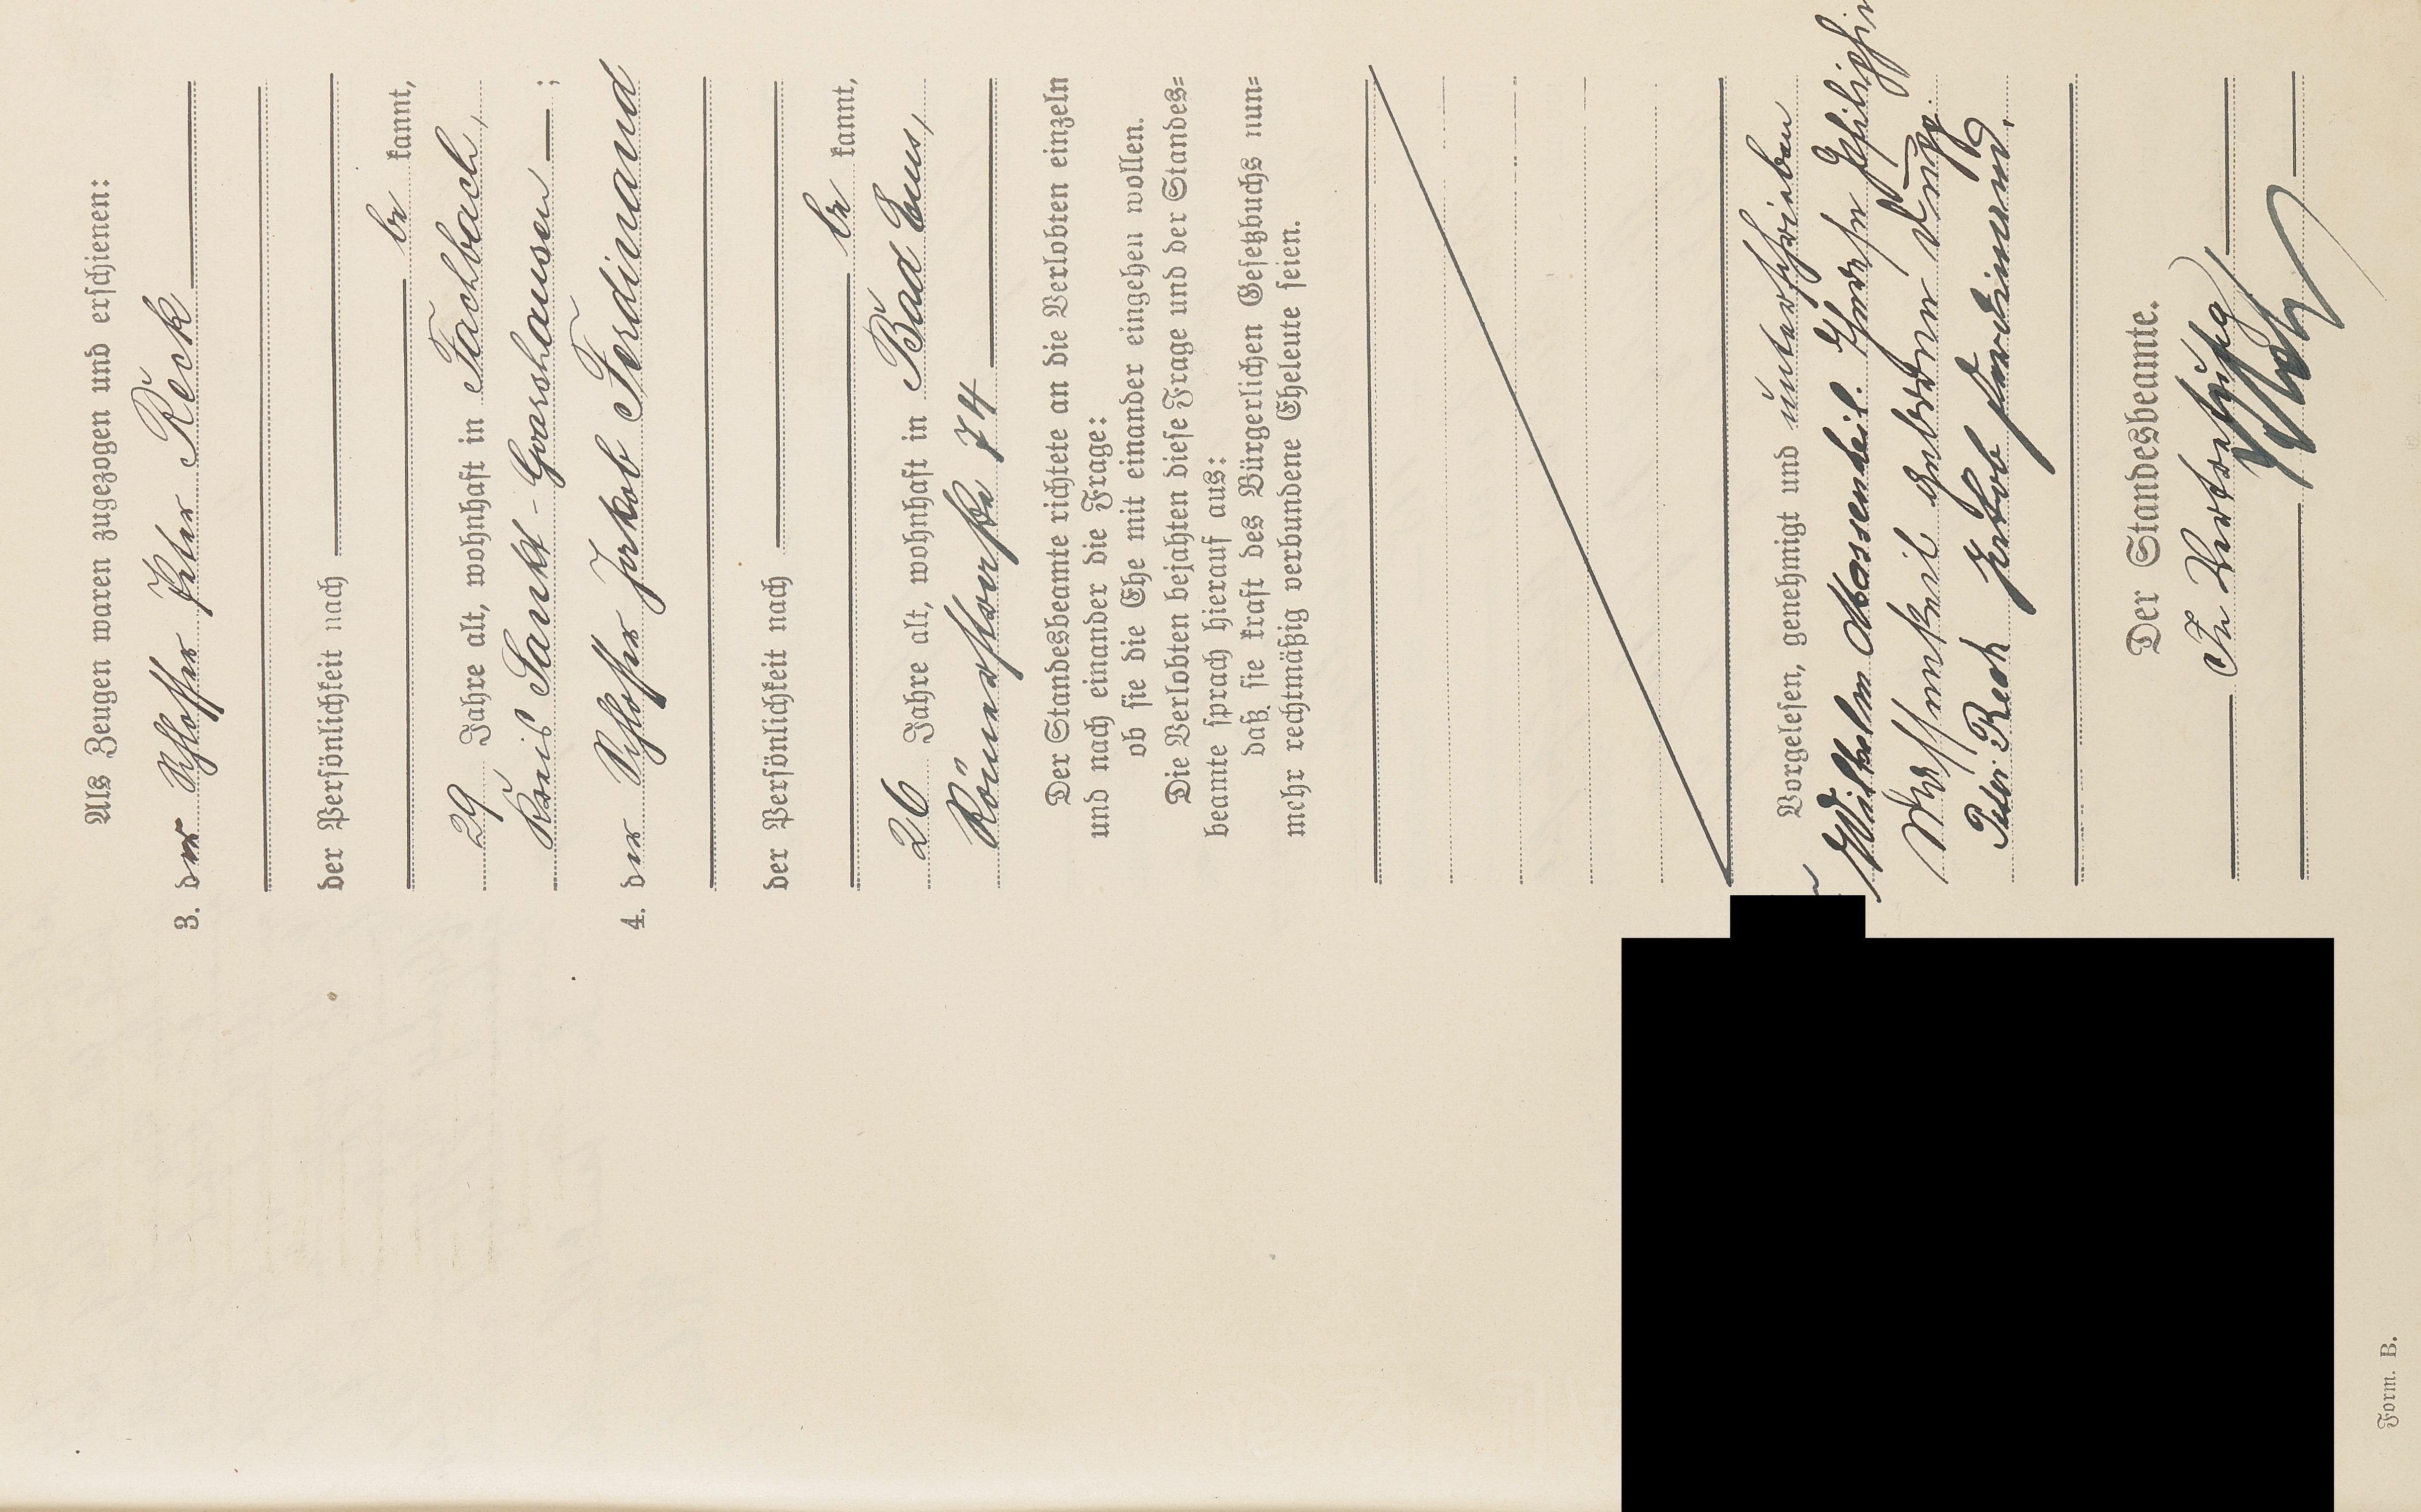 Als Zeugen waren zugezogen und erschienen:
3. der Schlosser Peter Reck
der Persönlichkeit nach
be kannt,
29 Jahre alt, wohnhaft in Fachbach,
Kreis Sankt-Goarshausen ;
4. der Schlosser Jakob Ferdinand
der Persönlichkeit nach
be kannt,
26 Jahre alt, wohnhaft in Bad Ems,
Römerstraße 74
Der Standesbeamte richtete an die Verlobten einzeln
und nach einander die Frage:
ob sie die Ehe mit einander eingehen wollen.
Die Verlobten bejahten diese Frage und der Standes=
beamte sprach hierauf aus:
daß sie kraft des Bürgerlichen Gesetzbuchs nun=
mehr rechtmäßig verbundene Eheleute seien.
Vorgelesen, genehmigt und unterschrieben
Wilhelm Massenkeil. Therese Philippine
Massenkeil geborene
Peter Reck Jakob Ferdinand.
Der Standesbeamte.
In Vertretung
Form. B.